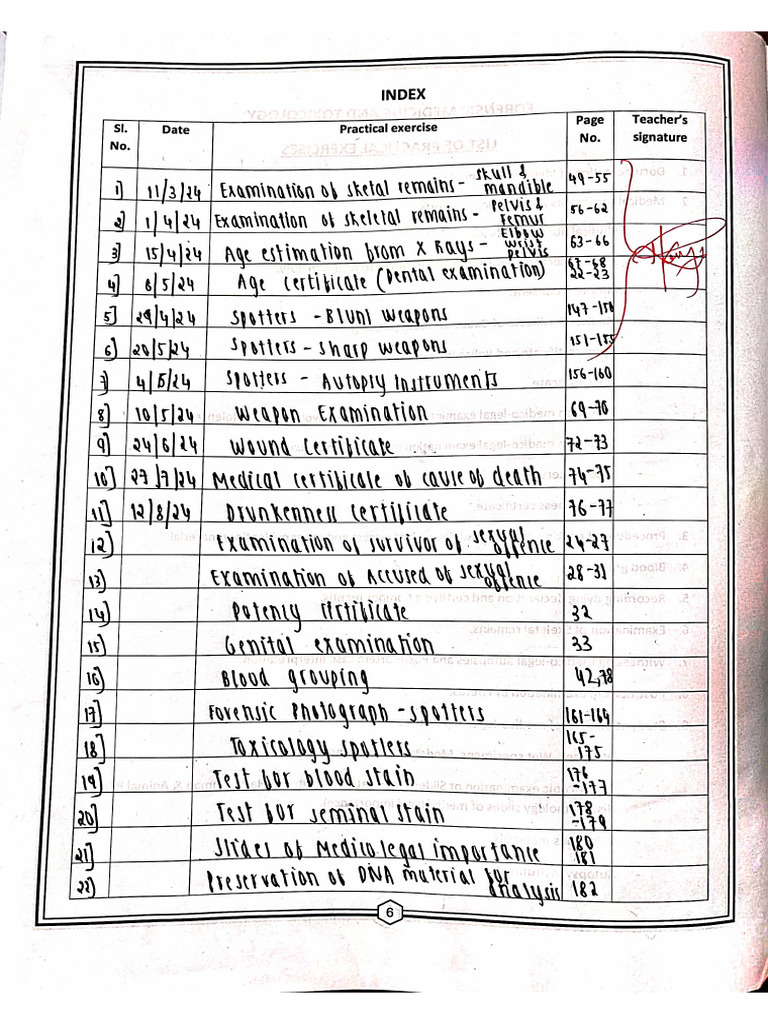 INDEX
Sl. No. Date Practical exercise Page No. Teacher's signature
1] 11/3/24 Examination of sketal remains - skull & mandible 49-55
2] 1/4/24 Examination of skeletal remains - Pelvis & Femur 56-62
3] 15/4/24 Age estimation from X Rays - Elbow wrist pelvis 63-66
4] 6/5/24 Age certificate (Dental examination) 67-68 22-23
5] 29/4/24 Spotters - Blunt weapons 147-150
6] 20/5/24 Spotters - Sharp weapons 151-155
7] 4/5/24 Spotters - Autopsy Instruments 156-160
8] 10/5/24 Weapon Examination 69-70
9] 24/6/24 Wound Certificate 72-73
10] 27/7/24 Medical certificate of cause of death 74-75
11] 12/8/24 Drunkenness certificate 76-77
12] Examination of survivor of sexual offence 24-27
13] Examination of Accused of sexual offence 28-31
14] Potency certificate 32
15] Genital examination 33
16] Blood grouping 42,78
17] Forensic Photograph - spotters 161-164
18] Toxicology spotters 165-175
19] Test for blood stain 176-177
20] Test for seminal stain 178-179
21] Slides of Medicolegal importance 180 181
22] Preservation of DNA material for analysis 182
6